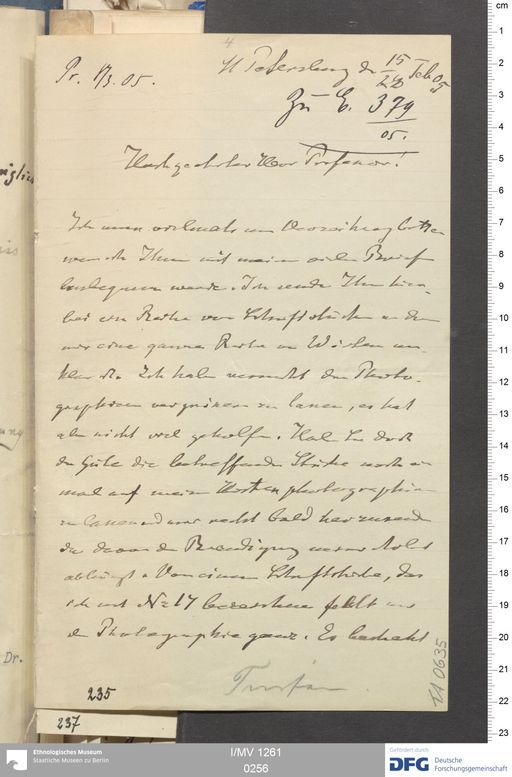 Pr. 1/3. 05.
4
St Petersburg d. 15/28 Feb. 05
Zu E. 379/05.
Hochgeehrter Herr Professor!
Ich muss vielmals um Verzeihung bitten
wenn ich Ihnen mit meinen vielen Briefen
belästigen werde. Ich sende Ihnen hier-
bei eine Reihe von Schriftstücken in denen
mir eine ganze Reihe von Wörtern un-
klar ist. Ich habe versucht die Photo-
graphieen vergrössern zu lassen, es hat
aber nicht viel geholfen. Haben Sie doch
die Güte die betreffenden Stücke noch ein
mal auf meine Kosten photographieren
zu lassen und mir recht bald herzusenden
da davon die Beendigung meiner Arbeit
abhängt. Von einem Schriftstücke, das
ich mit No 17 bezeichne fehlt mir
die Photographie ganz. Es besteht
Turfan
235
237
Dr.
IA 0635
cm
1
2
3
4
5
6
7
8
9
10
11
12
13
14
15
16
17
18
19
20
21
22
23
Ethnologisches Museum
Staatliche Museen zu Berlin
I/MV 1261
0256
Gefördert durch
DFG Deutsche
Forschungsgemeinschaft